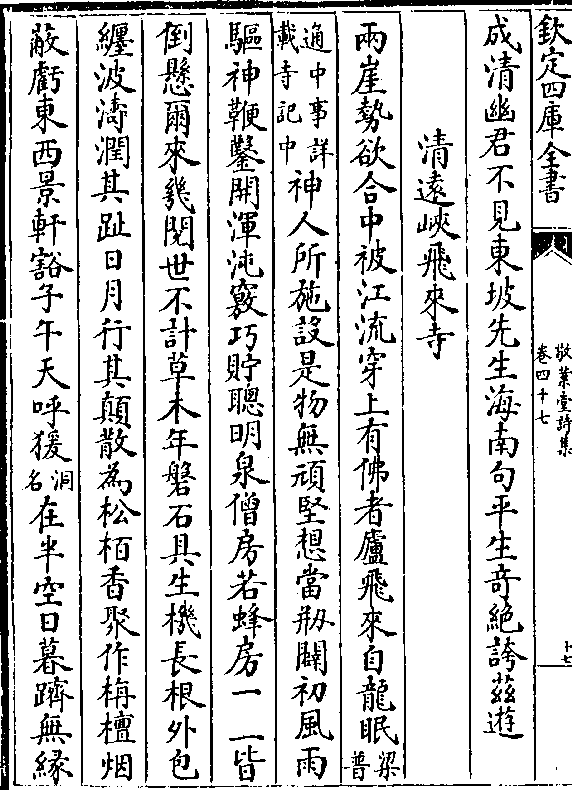 欽定四庫全書
敬業堂詩集
卷四十七
十七
成清幽君不見東坡先生海南句平生奇絶誇茲遊
清遠峽飛來寺
兩崖勢欲合中被江流穿上有佛者廬飛來自龍眠梁普
通中事詳載寺記中神人所施設是物無頑堅想當剏闢初風雨
驅神鞭鑿開渾沌竅巧貯聰明泉僧房若蜂房一一皆
倒懸爾來幾閱世不計草木年磐石具生機長根外包
纏波濤潤其趾日月行其顛散為松栢香聚作栴檀烟
蔽虧東西景軒豁子午天呼猨洞名在半空日暮躋無緣